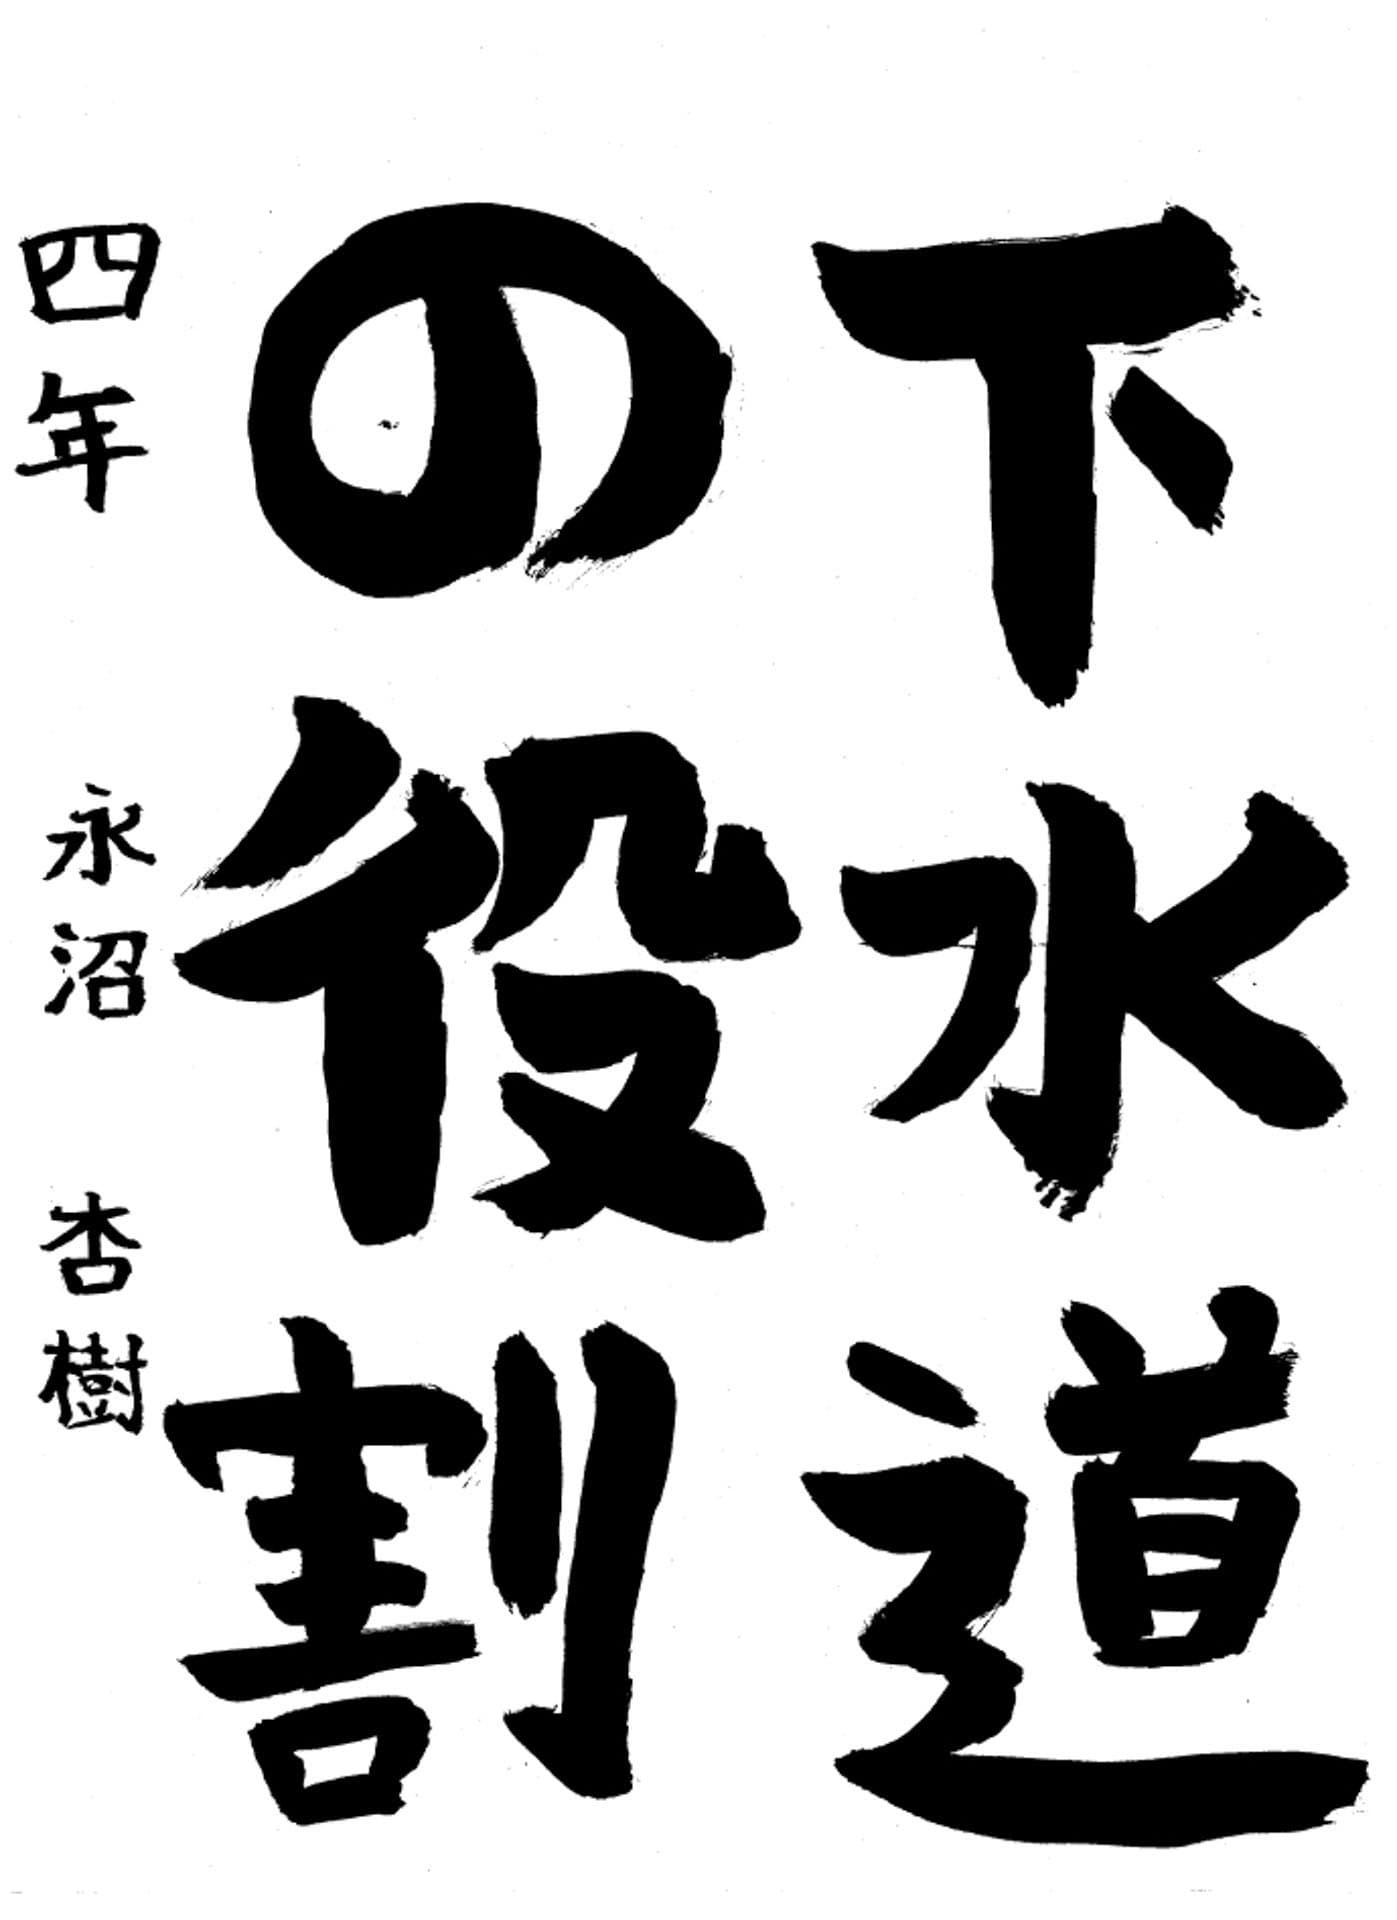 下水道
の役割
四年 永沼 杏樹